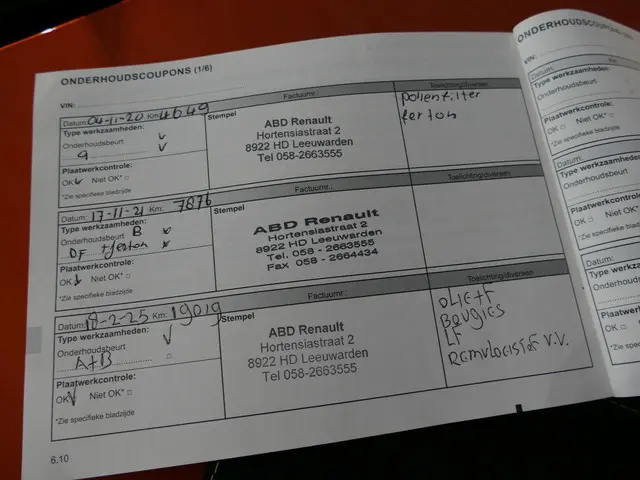 ONDERHOUDSCOUPONS (1/6)
VIN:
Datum: 04-11-20 Km: 4649
Type werkzaamheden:
Onderhoudsbeurt
Plaatwerkcontrole:
OK Niet OK*
*Zie specifieke bladzijde
Factuurnr.:
Stempel
ABD Renault
Hortensiastraat 2
8922 HD Leeuwarden
Tel 058-2663555
Toelichting/diversen
pollenfilter
ferton
Datum: 17-11-21 Km: 7876
Type werkzaamheden:
Onderhoudsbeurt B
OF + ferton
Plaatwerkcontrole:
OK Niet OK*
*Zie specifieke bladzijde
Factuurnr.:
Stempel
ABD Renault
Hortensiastraat 2
8922 HD Leeuwarden
Tel. 058 - 2663555
Fax 058 - 2664434
Toelichting/diversen
Datum: 18-2-25 Km: 19019
Type werkzaamheden:
Onderhoudsbeurt
A+B
Plaatwerkcontrole:
OK Niet OK*
*Zie specifieke bladzijde
Factuurnr.:
Stempel
ABD Renault
Hortensiastraat 2
8922 HD Leeuwarden
Tel 058-2663555
Toelichting/diversen
OLIE+F
Bougies
LF
Remvloeistof V.V.
6.10
ONDERHOUDSCOUPONS
VIN:
Datum:
Type werkzaamheden:
Onderhoudsbeurt
Plaatwerkcontrole:
OK Niet OK*
*Zie specifieke bladzijde
Datum:
Type werkzaamheden:
Onderhoudsbeurt
Plaatwerkcontrole:
OK Niet OK*
*Zie specifieke bladzijde
Datum:
Type werkzaamheden:
Onderhoudsbeurt
Plaatwerk
OK Niet
*Zie specifieke